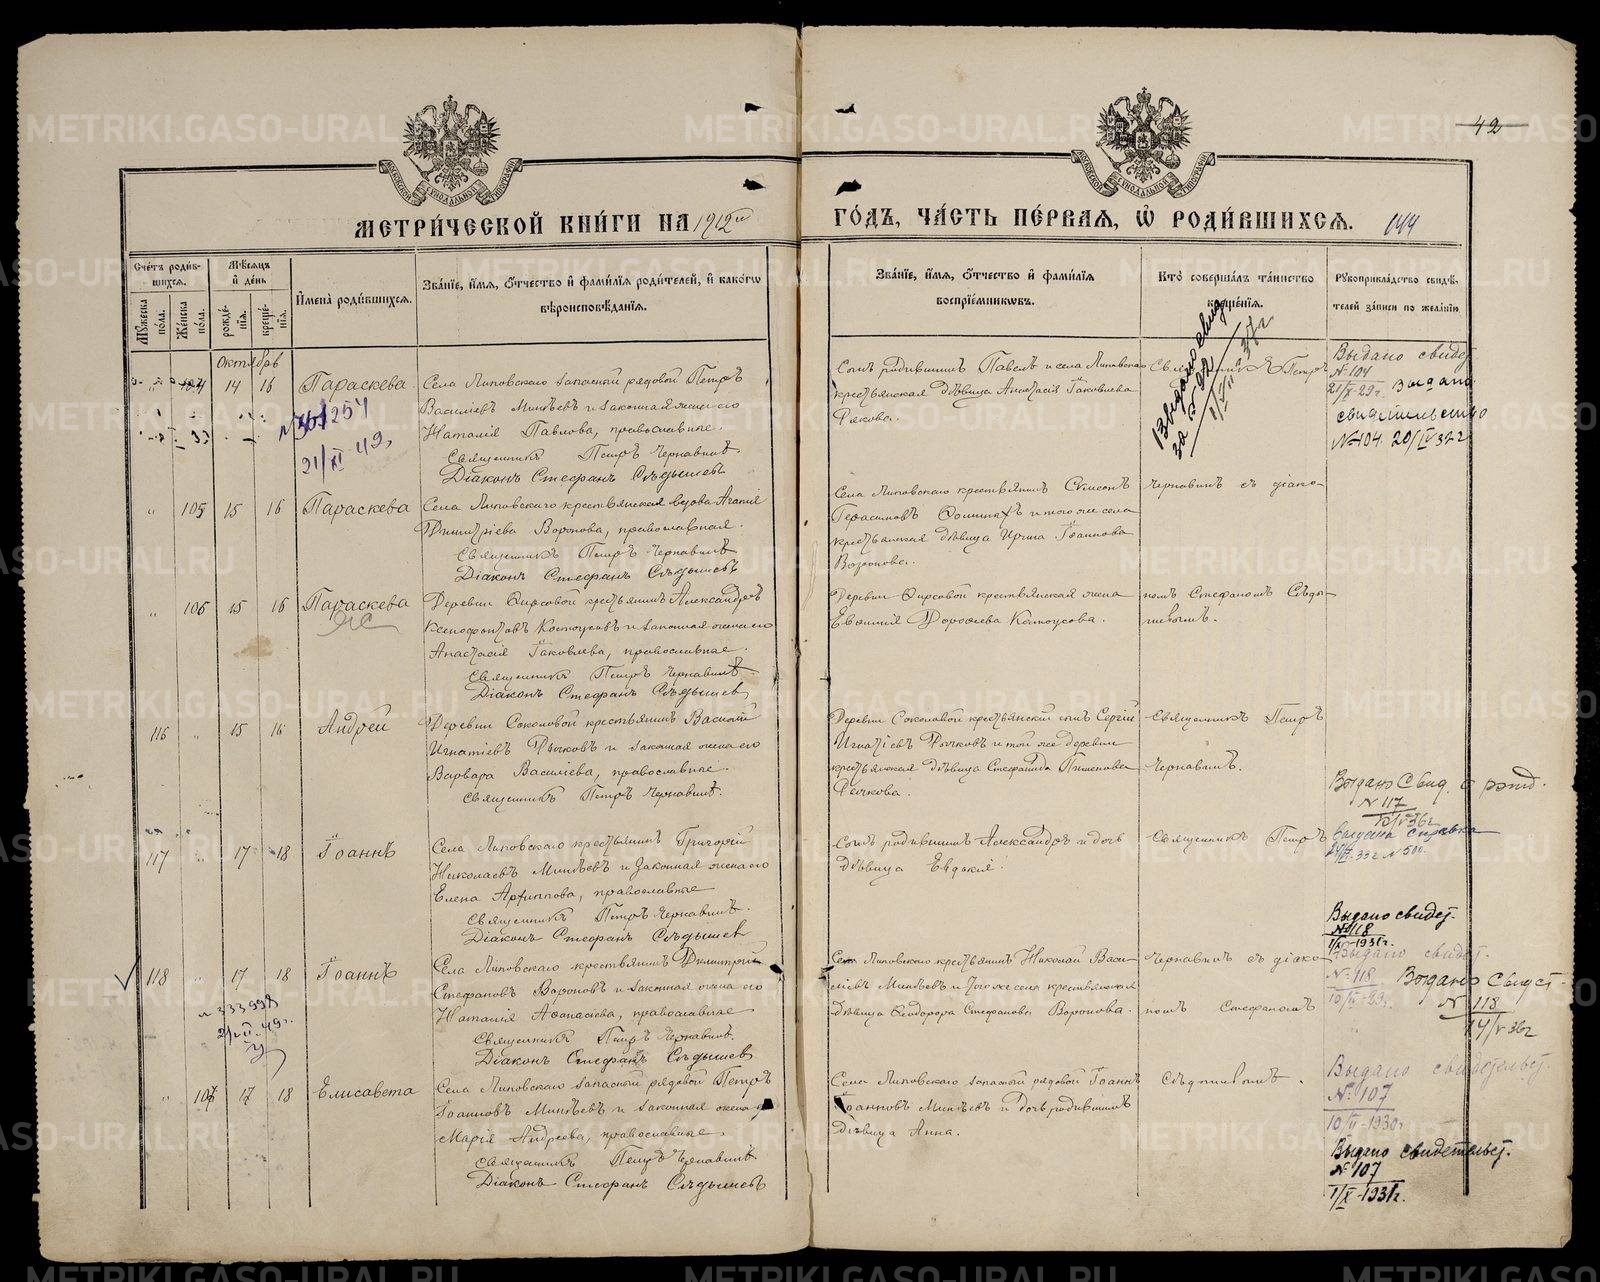 METRIKI.GASO-URAL.RU
42
МЕТРИ́ЧЕСКОЙ КНИ́ГИ НА 1912й
ГО́ДЪ, ЧА́СТЬ ПЕ́РВАЯ, Ѡ҆ РОДИ́ВШИХСЯ.
Сче́тъ роди́в-
шихся.
Му́жеска по́ла.
Же́нска по́ла.
Мѣ́сяцъ и҆ де́нь
рожде́-
нїя.
креще́-
нїя.
И҆мена̀ роди́вшихся.
Зва́нїе, и҆́мя, ѻ҆́тчество и҆ фами́лїя роди́телей, и҆ како́гѡ
вѣроисповѣ́данїя.
Зва́нїе, и҆́мя, ѻ҆́тчество и҆ фами́лїя
воспрїе́мниковъ.
Кто̀ соверша́лъ та́инство
креще́нїя.
Рꙋкоприкла́дство свидѣ́-
телей за́писи по жела́нїю
Октябрь
104 14 16 Параскева
Села Липовскаго запасный рядовой Петръ
Василіевъ Минѣевъ и законная жена его
Наталія Павлова, православные.
Священникъ Петръ Чернавинъ.
Діаконъ Стефанъ Сѣдышевъ
21/XI 49г.
Сынъ родившихъ Павелъ и села Липовскаго
крестьянская дѣвица Анастасія Іаковлева
Священникъ Петръ
Выдано свид.
№ 104
Выдано
свидетельство
№ 104. 20/IV 37г
105 15 16 Параскева
Села Липовскаго крестьянская вдова Агапія
Димитріева Воронова, православная.
Священникъ Петръ Чернавинъ
Діаконъ Стефанъ Сѣдышевъ
Села Липовскаго крестьянинъ Симеонъ
Герасимовъ и того же села
крестьянская дѣвица Ирина Іоаннова
Воронова.
Чернавинъ съ діако-
106 15 16 Параскева
Деревни Фирсовой крестьянинъ Александръ
Ксенофонтовъ Костоусовъ и законная жена его
Анастасія Іаковлева, православные.
Священникъ Петръ Чернавинъ.
Діаконъ Стефанъ Сѣдышев
Деревни Фирсовой крестьянская жена
Евфимія Дорофеева Костоусова.
номъ Стефаномъ Сѣды-
шевымъ.
116 15 16 Андрей
Деревни Соколовой крестьянинъ Василій
Игнатіевъ Рычковъ и законная жена его
Варвара Василіева, православные.
Священникъ Петръ Чернавинъ.
Деревни Соколовой крестьянскій сынъ Сергій
Игнатіевъ Рычковъ и той же деревни
крестьянская дѣвица Стефанида Пименова
Рычкова.
Священникъ Петръ
Чернавинъ.
Выдано Свид. о рожд.
№ 117
117 17 18 Іоаннъ
Села Липовскаго крестьянинъ Григорій
Николаевъ Минѣевъ и законная жена его
Елена Архиппова, православные
Священникъ Петръ Чернавинъ.
Діаконъ Стефанъ Сѣдышев
Сынъ родившихъ Александръ и дочь
дѣвица Евдокія.
Священникъ Петръ
справка
Выдано свидет.
№ 118
118 17 18 Іоаннъ
№ 333998
Села Липовскаго крестьянинъ Димитрій
Стефановъ Вороновъ и законная жена его
Наталія Афанасіева, православные
Священникъ Петръ Чернавинъ.
Діаконъ Стефанъ Сѣдышев
Села Липовскаго крестьянинъ Николай Васи-
ліевъ Минѣевъ и того же села крестьянская
дѣвица Феодора Стефанова Воронова.
Чернавинъ съ діако-
номъ Стефаномъ
Выдано свидет.
№ 118
Выдано Свидет.
№ 118
14/V 36г
107 17 18 Елисавета
Села Липовскаго запасный рядовой Петръ
Іоанновъ Минѣевъ и законная жена его
Марія Андреева, православные.
Священникъ Петръ Чернавинъ
Діаконъ Стефанъ Сѣдышевъ
Села Липовскаго запасный рядовой Іоаннъ
Іоанновъ Минѣевъ и дочь родившихъ
дѣвица Анна.
Сѣдышевымъ.
Выдано свидетельст.
№ 107
10/II-1930г
Выдано свидетельст.
№ 107
1/X-1931г.